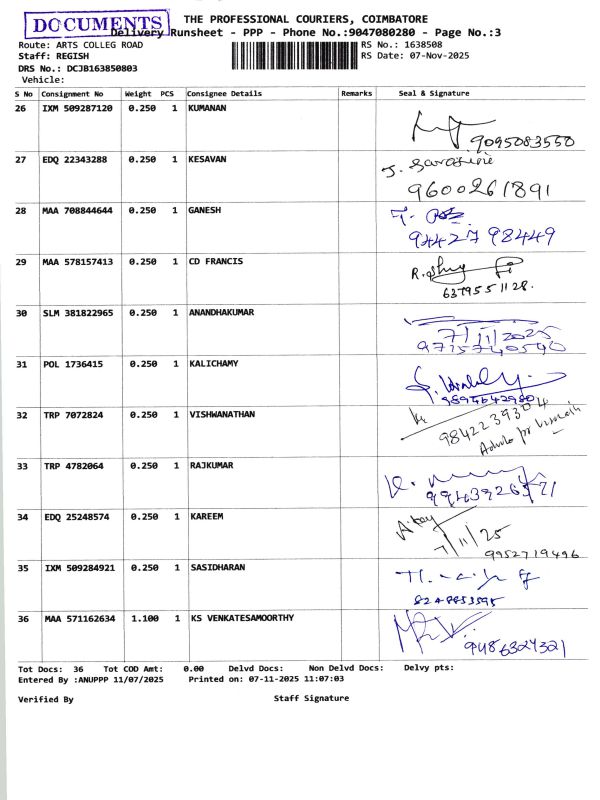 DOCUMENTS
THE PROFESSIONAL COURIERS, COIMBATORE
Delivery Runsheet - PPP - Phone No.:9047080280 - Page No.:3
Route: ARTS COLLEG ROAD
RS No.: 1638508
Staff: REGISH
RS Date: 07-Nov-2025
DRS No.: DCJB163850803
Vehicle:
S No Consignment No Weight PCS Consignee Details Remarks Seal & Signature
26 IXM 509287120 0.250 1 KUMANAN
9095083550
27 EDQ 22343288 0.250 1 KESAVAN
9600261891
28 MAA 708844644 0.250 1 GANESH
9442798449
29 MAA 578157413 0.250 1 CD FRANCIS
6379551128.
30 SLM 381822965 0.250 1 ANANDHAKUMAR
7/11/2025
9715740590
31 POL 1736415 0.250 1 KALICHAMY
32 TRP 7072824 0.250 1 VISHWANATHAN
9842239304
33 TRP 4782064 0.250 1 RAJKUMAR
34 EDQ 25248574 0.250 1 KAREEM
7/11/25
9952719496
35 IXM 509284921 0.250 1 SASIDHARAN
36 MAA 571162634 1.100 1 KS VENKATESAMOORTHY
9486324321
Tot Docs: 36 Tot COD Amt: 0.00 Delvd Docs: Non Delvd Docs: Delvy pts:
Entered By :ANUPPP 11/07/2025 Printed on: 07-11-2025 11:07:03
Verified By Staff Signature